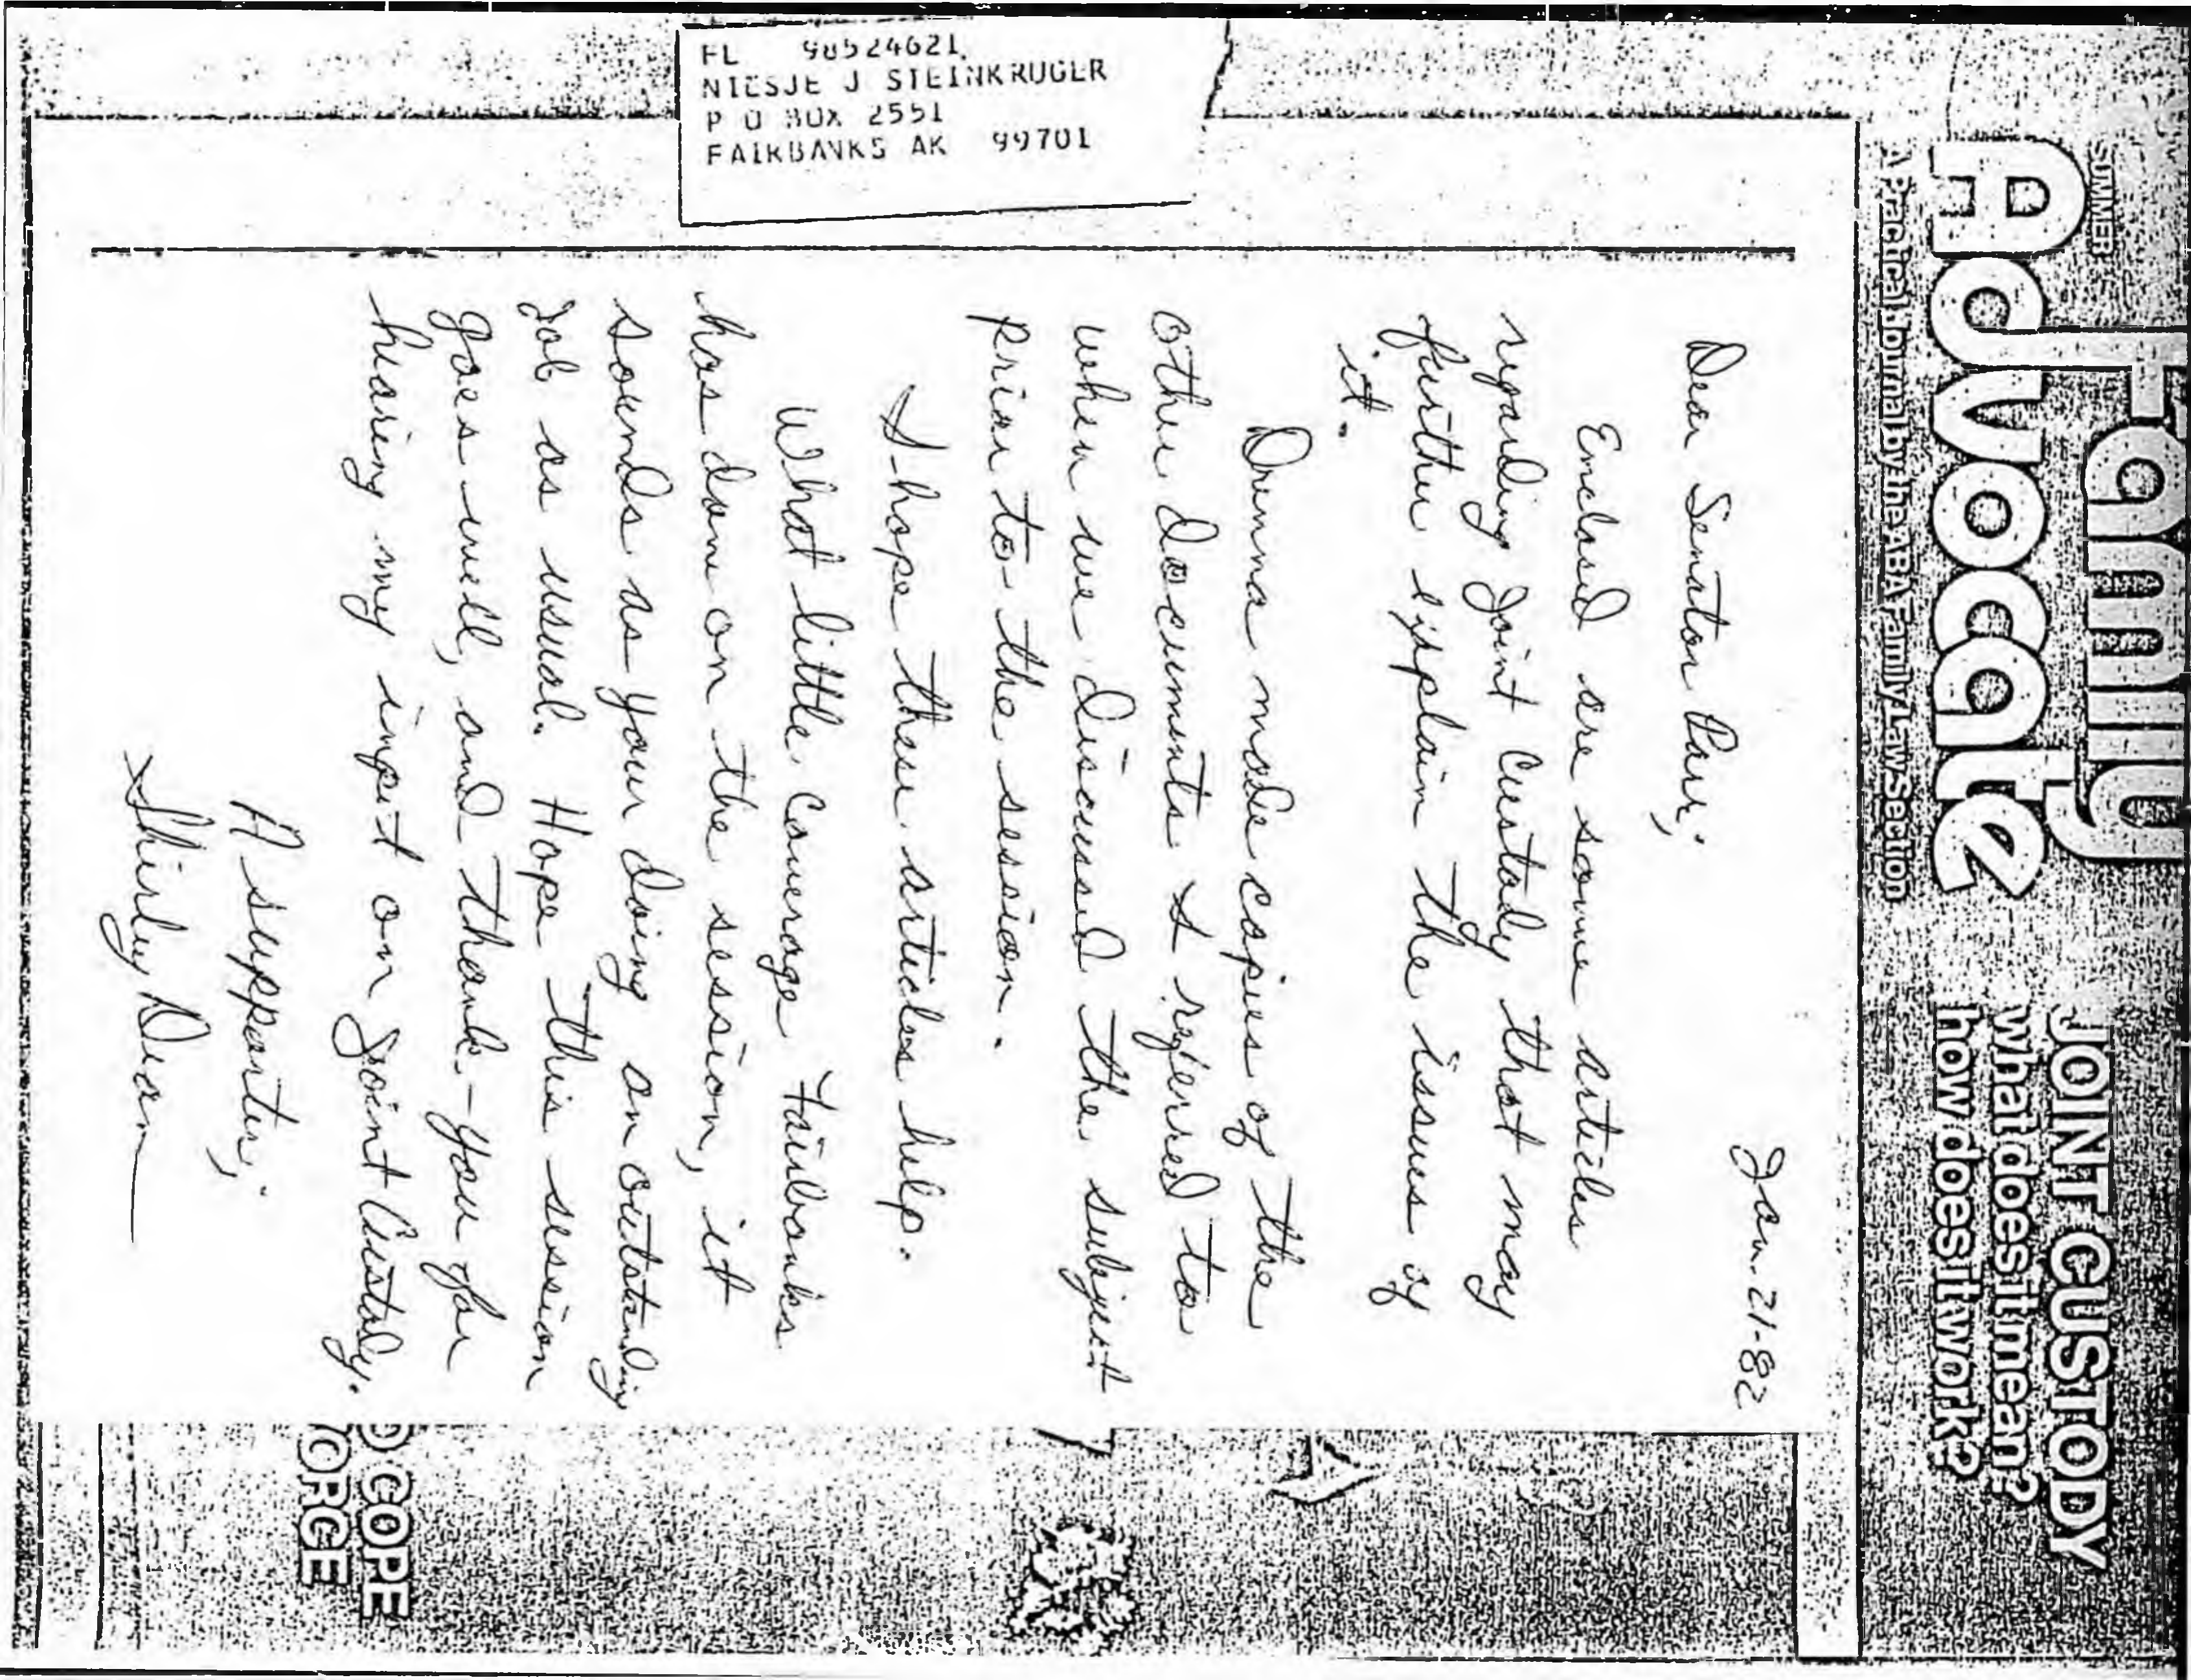 SUMMER
Family
Advocate
A Practical Journal by the ABA Family Law Section
JOINT CUSTODY
what does it mean?
how does it work?
FL 98524621
NIESJE J STEINKRUGER
P O BOX 2551
FAIRBANKS AK 99701
Jan. 21-82
Dear Senator Parr,
Enclosed are some articles
regarding Joint Custody that may
further explain the issues of
it.
Drenna made copies of the
other documents I referred to
when we discussed the subject
prior to the session.
I hope these articles help.
What little coverage Fairbanks
has done on the session, it
sounds as your doing an outstanding
job as usual. Hope this session
goes well, and thank-you for
hearing my input on Joint Custody.
A supporter,
Shirley Dean
COPE
ORCE